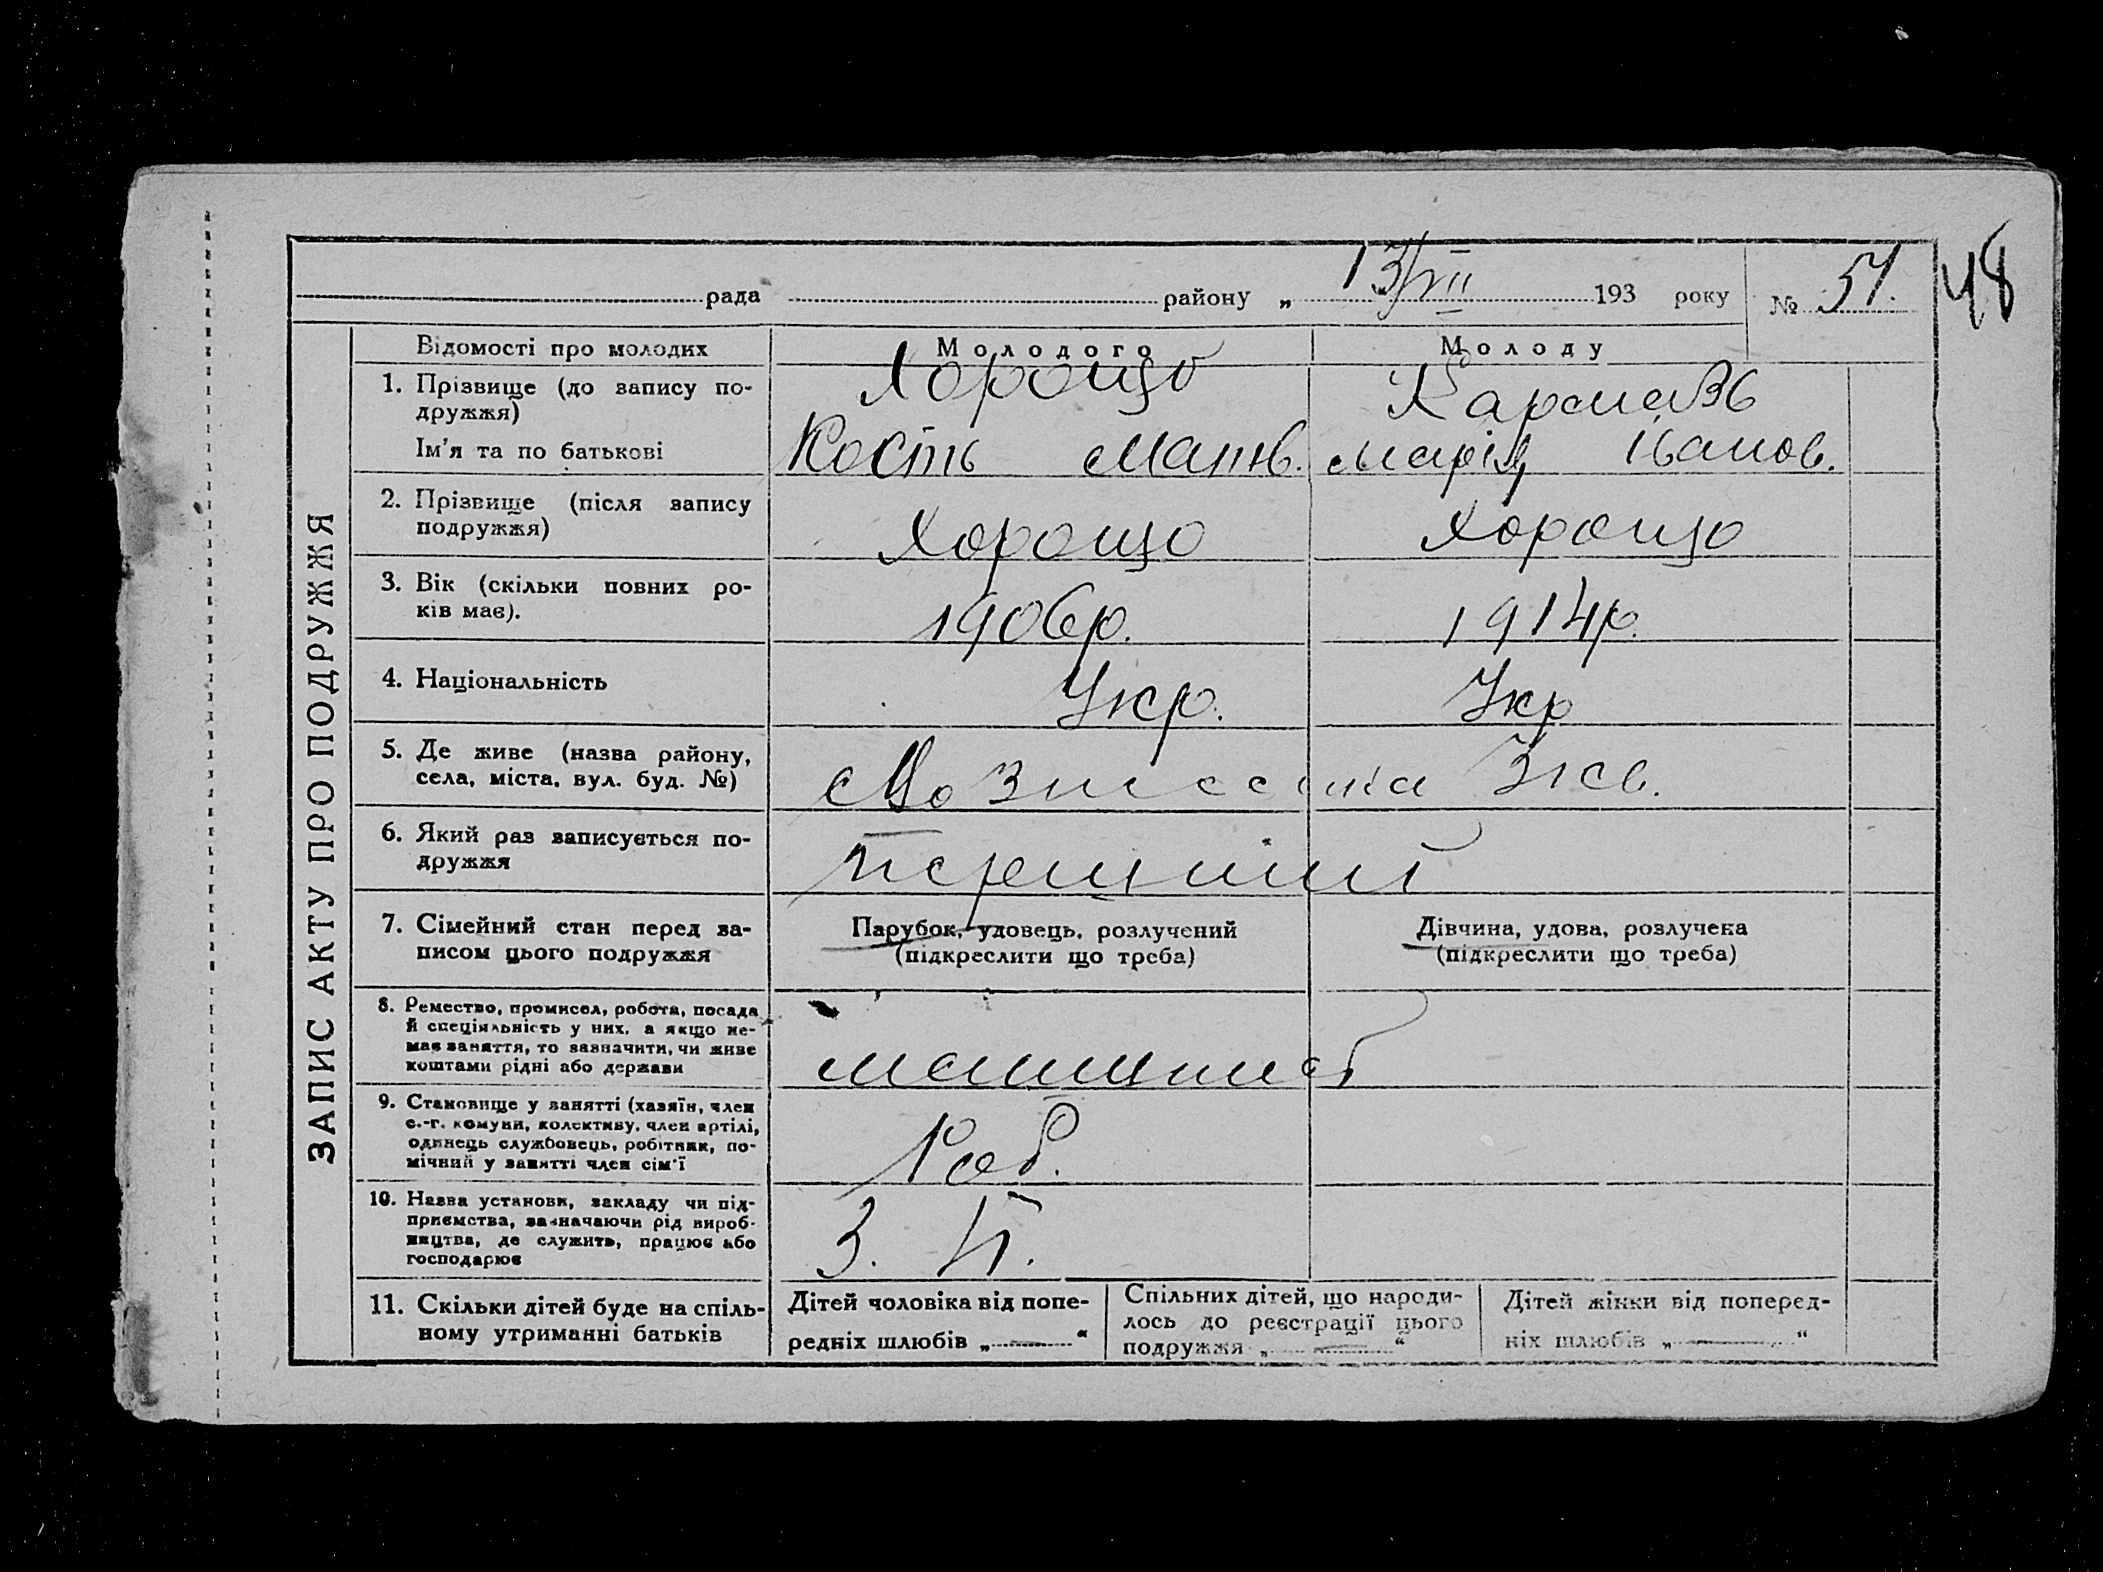 рада району „ 13/VII 193 року № 51. 48
ЗАПИС АКТУ ПРО ПОДРУЖЖЯ
Відомості про молодих Молодого Молоду
1. Прізвище (до запису по-
дружжя) Хорощо
Ім'я та по батькові Кость Матв. Марія Іванов.
2. Прізвище (після запису
подружжя) Хорощо Хорощо
3. Вік (скільки повних ро-
ків має). 1906р. 1914р.
4. Національність Укр. Укр
5. Де живе (назва району,
села, міста, вул. буд. №)
6. Який раз записується по-
дружжя перший
7. Сімейний стан перед за-
писом цього подружжя
Парубок, удовець, розлучений
(підкреслити що треба)
Дівчина, удова, розлучена
(підкреслити що треба)
8. Ремество, промисел, робота, посада
й спеціяльність у них, а якщо не-
має заняття, то зазначити, чи живе
коштами рідні або держави
машинист
9. Становище у занятті (хазяїн, член
с.-г. комуни, колективу, член артілі,
одинець службовець, робітник, по-
мічний у занятті член сім'ї
Роб.
10. Назва установи, закладу чи під-
приємства, зазначаючи рід вироб-
ництва, де служить, працює або
господарює
11. Скільки дітей буде на спіль-
ному утриманні батьків
Дітей чоловіка від попе-
редніх шлюбів „ — “
Спільних дітей, що народи-
лось до реєстрації цього
подружжя „ — “
Дітей жінки від поперед-
ніх шлюбів „ — “